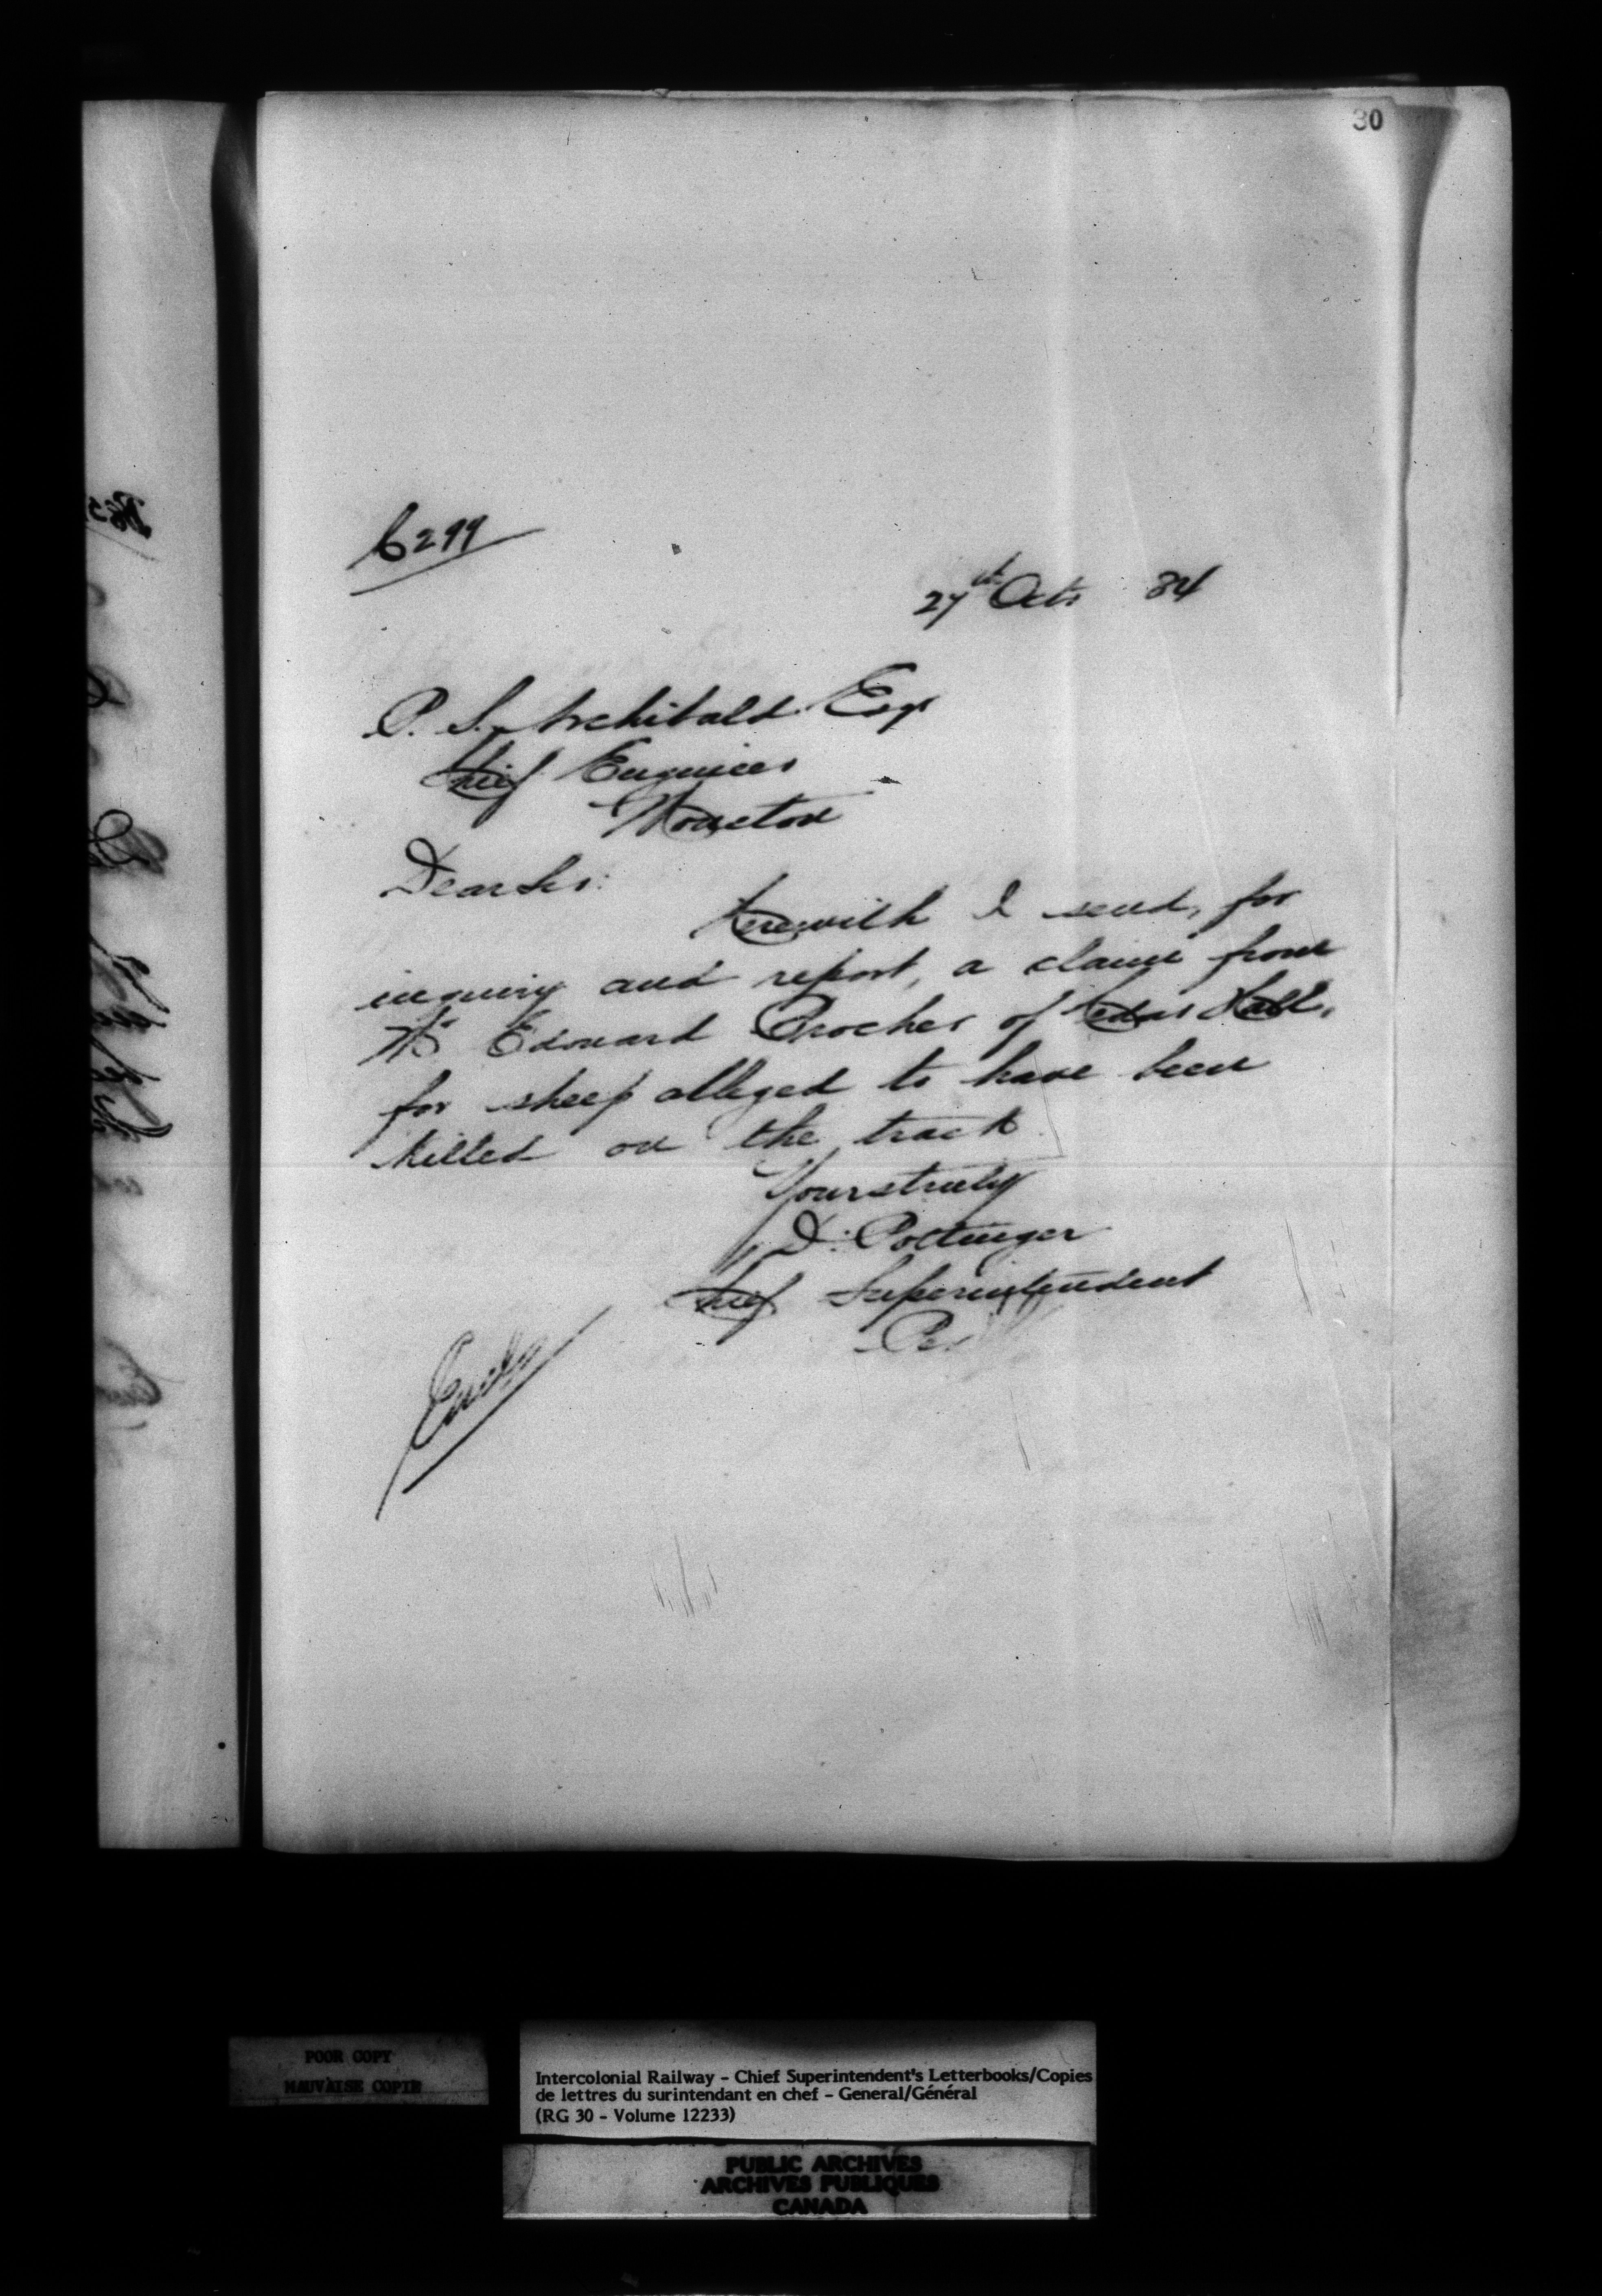 30
6299
27th Octr 84
P. S. Archibald Esqr
Chief Engineer
Moncton
Dear Sir:
Herewith I send, for
inquiry and report, a claim from
Mr Edouard Procher of Cedar Hall,
for sheep alleged to have been
killed on the track
Yours truly
D. Pottinger
Chief Superintendent
POOR COPY
MAUVAISE COPIE
Intercolonial Railway - Chief Superintendent's Letterbooks/Copies
de lettres du surintendant en chef - General/Général
(RG 30 - Volume 12233)
PUBLIC ARCHIVES
ARCHIVES PUBLIQUES
CANADA